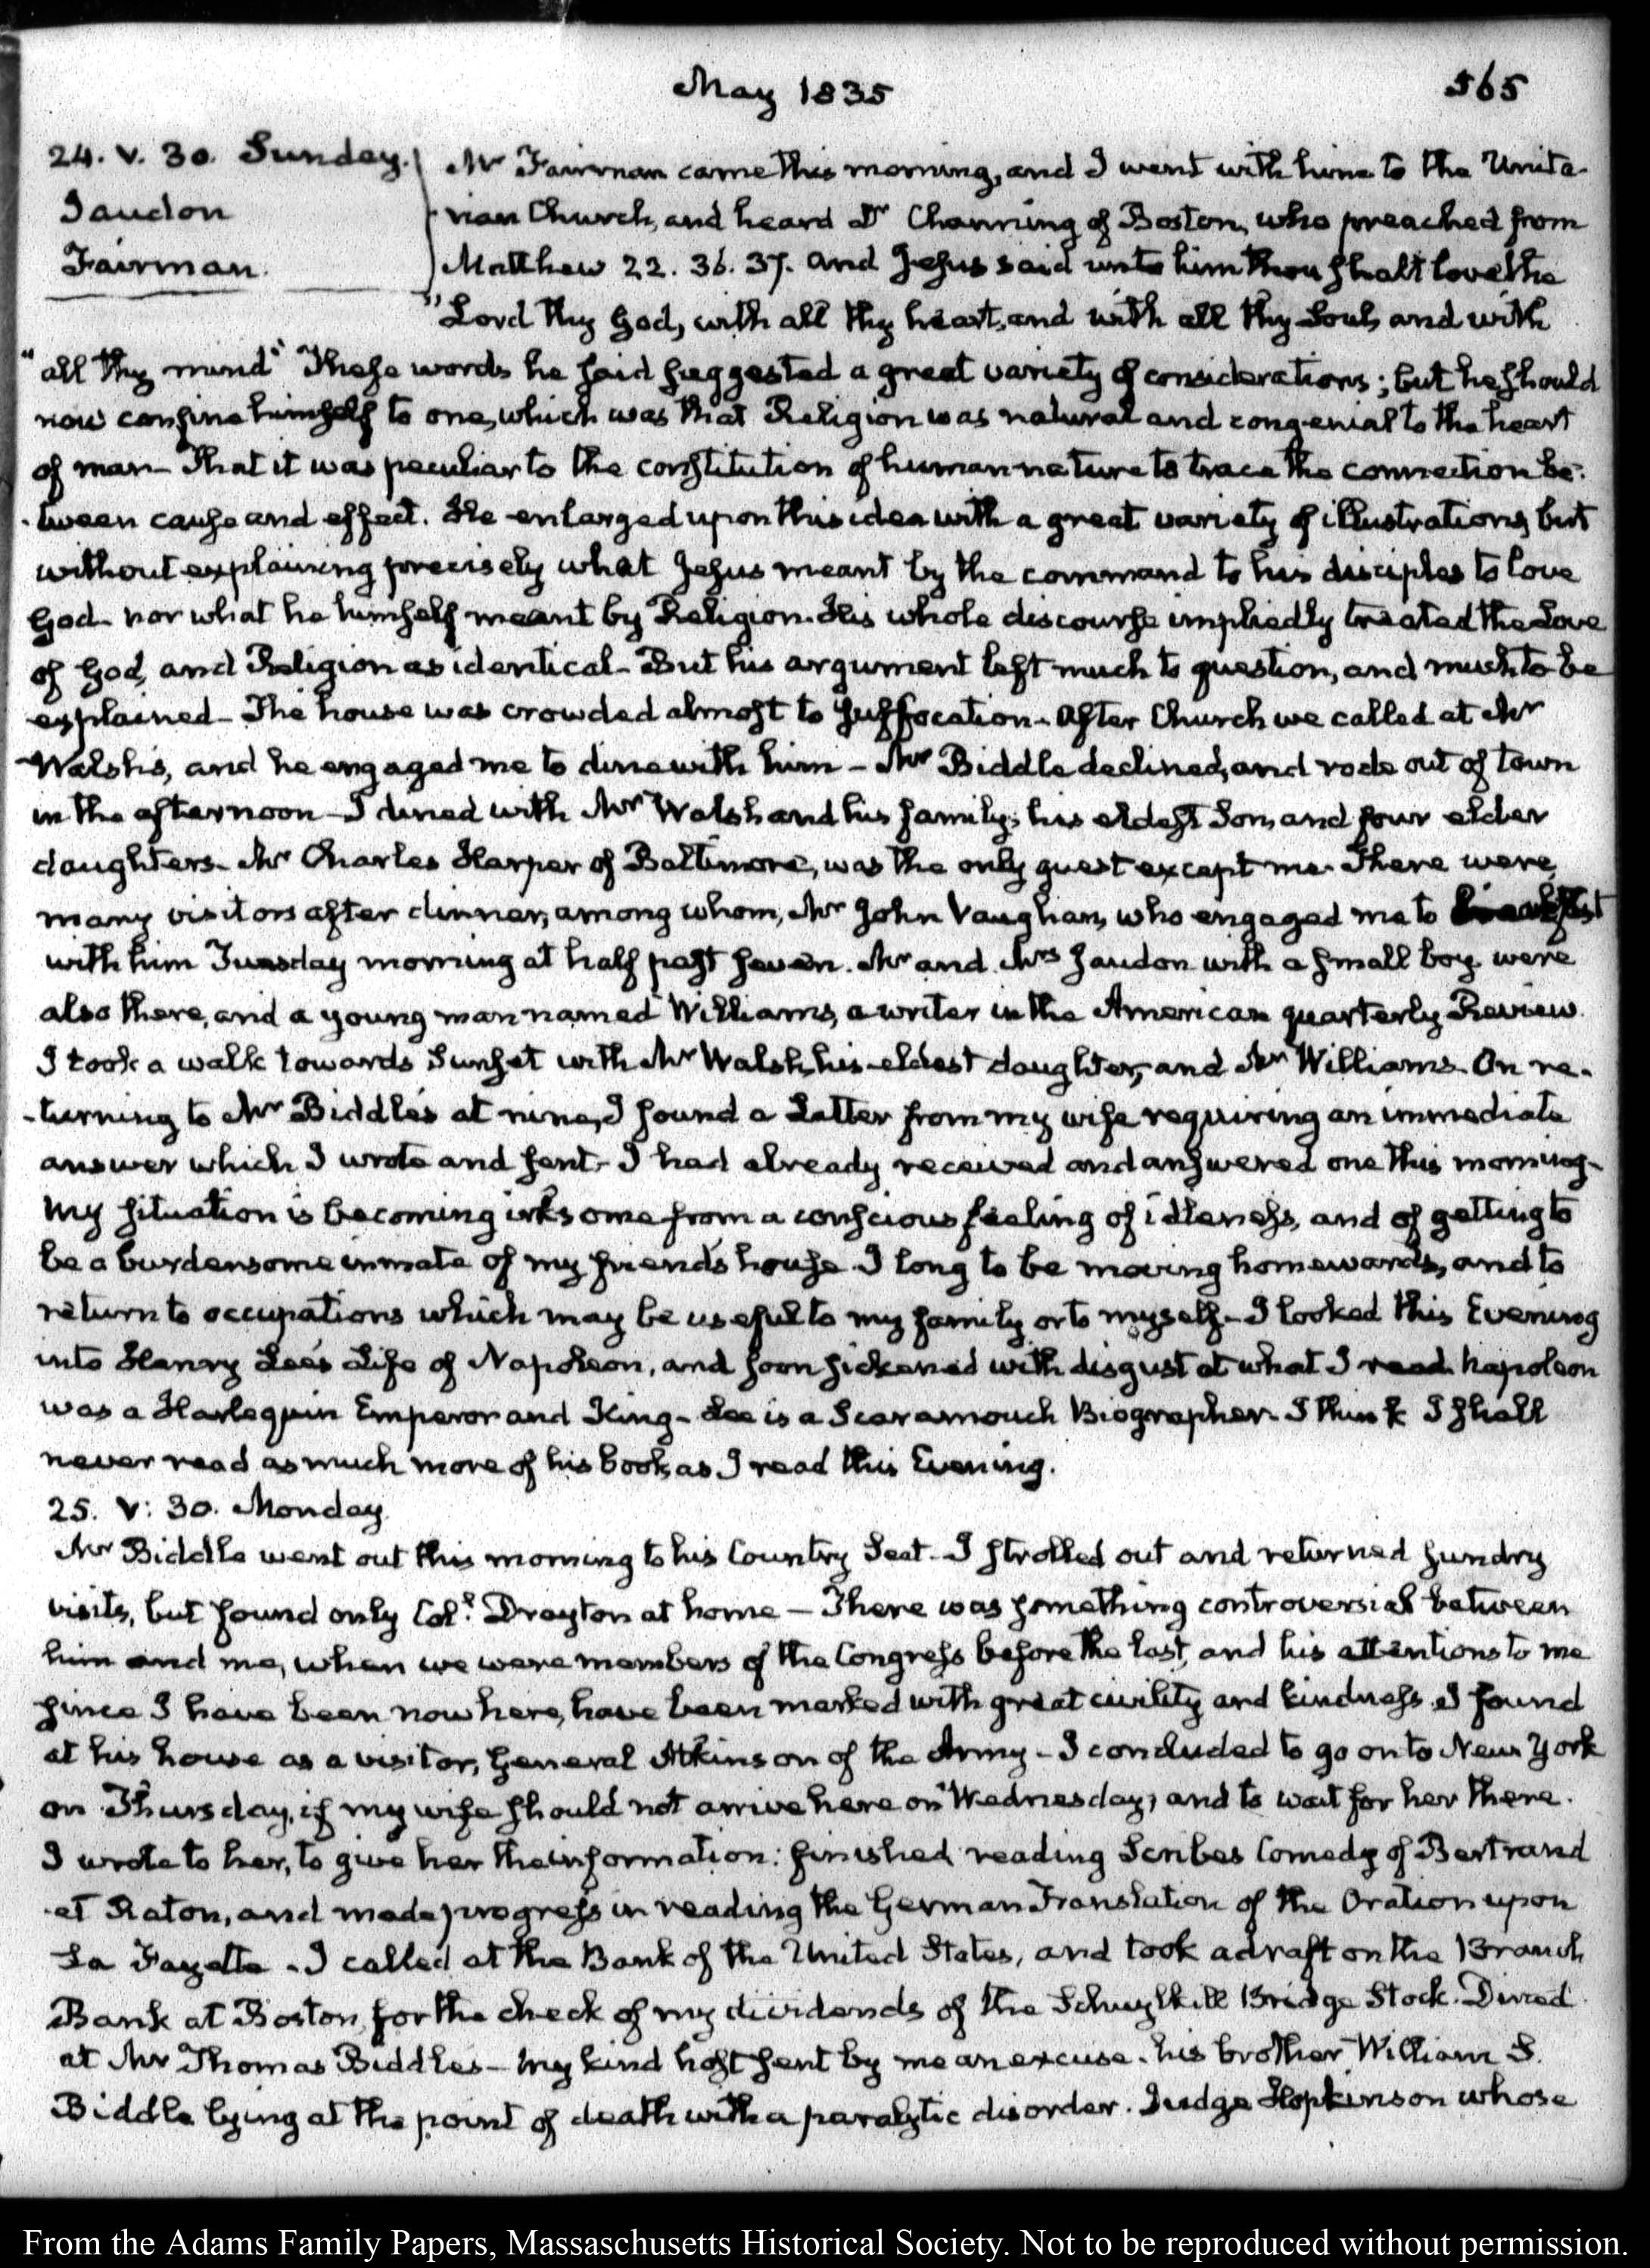 May 1835
565
24. V. 30. Sunday.
Jaudon
Fairman.
Mr Fairman came this morning, and I went with him to the Unita-
rian Church, and heard Dr Channing of Boston, who preached from
Matthew 22. 36. 37. And Jesus said unto him thou shalt love the
"Lord thy God, with all thy heart, and with all thy Soul, and with
"all thy mind" These words he said suggested a great variety of considerations; but he should
now confine himself to one, which was that Religion was natural and congenial to the heart
of man— That it was peculiar to the constitution of human nature to trace the connection be-
-tween cause and effect. He enlarged upon this idea with a great variety of illustrations, but
without explaining precisely what Jesus meant by the command to his disciples to love
God— nor what he himself meant by Religion. His whole discourse impliedly treated the Love
of God, and Religion as identical— But his argument left much to question, and much to be
explained— The house was crowded almost to suffocation— After Church we called at Mr
Walsh's, and he engaged me to dine with him— Mr Biddle declined, and rode out of town
in the afternoon— I dined with Mr Walsh and his family; his eldest Son, and four elder
daughters— Mr Charles Harper of Baltimore, was the only guest except me. There were
many visitors after dinner, among whom, Mr John Vaughan, who engaged me to breakfast
with him Tuesday morning at half past seven. Mr and Mrs Jaudon with a small boy were
also there, and a young man named Williams, a writer in the American quarterly Review.
I took a walk towards Sunset with Mr Walsh, his eldest daughter, and Mr Williams. On re-
-turning to Mr Biddle's at nine, I found a Letter from my wife requiring an immediate
answer which I wrote and sent— I had already received and answered one this morning—
My situation is becoming irksome from a conscious feeling of idleness, and of getting to
be a burdensome inmate of my friend's house. I long to be moving homewards, and to
return to occupations which may be useful to my family or to myself— I looked this Evening
into Henry Lee's Life of Napoleon, and soon sickened with disgust at what I read. Napoleon
was a Harlequin Emperor and King— Lee is a Scaramouch Biographer. I think I shall
never read as much more of his book, as I read this Evening.
25. V: 30. Monday.
Mr Biddle went out this morning to his Country Seat— I strolled out and returned sundry
visits, but found only Col.l Drayton at home— There was something controversial between
him and me, when we were members of the Congress before the last, and his attentions to me
since I have been now here, have been marked with great civility and kindness. I found
at his house as a visitor, General Atkinson of the Army— I concluded to go on to New York
on Thursday, if my wife should not arrive here on Wednesday, and to wait for her there.
I wrote to her, to give her the information: finished reading Scribes Comedy of Bertrand
et Raton, and made progress in reading the German Translation of the Oration upon
La Fayette— I called at the Bank of the United States, and took a draft on the Branch
Bank at Boston, for the check of my dividends of the Schuylkill Bridge Stock. Dined
at Mr Thomas Biddle's— My kind host sent by me an excuse. his brother William S.
Biddle lying at the point of death with a paralytic disorder. Judge Hopkinson whose
From the Adams Family Papers, Massachusetts Historical Society. Not to be reproduced without permission.